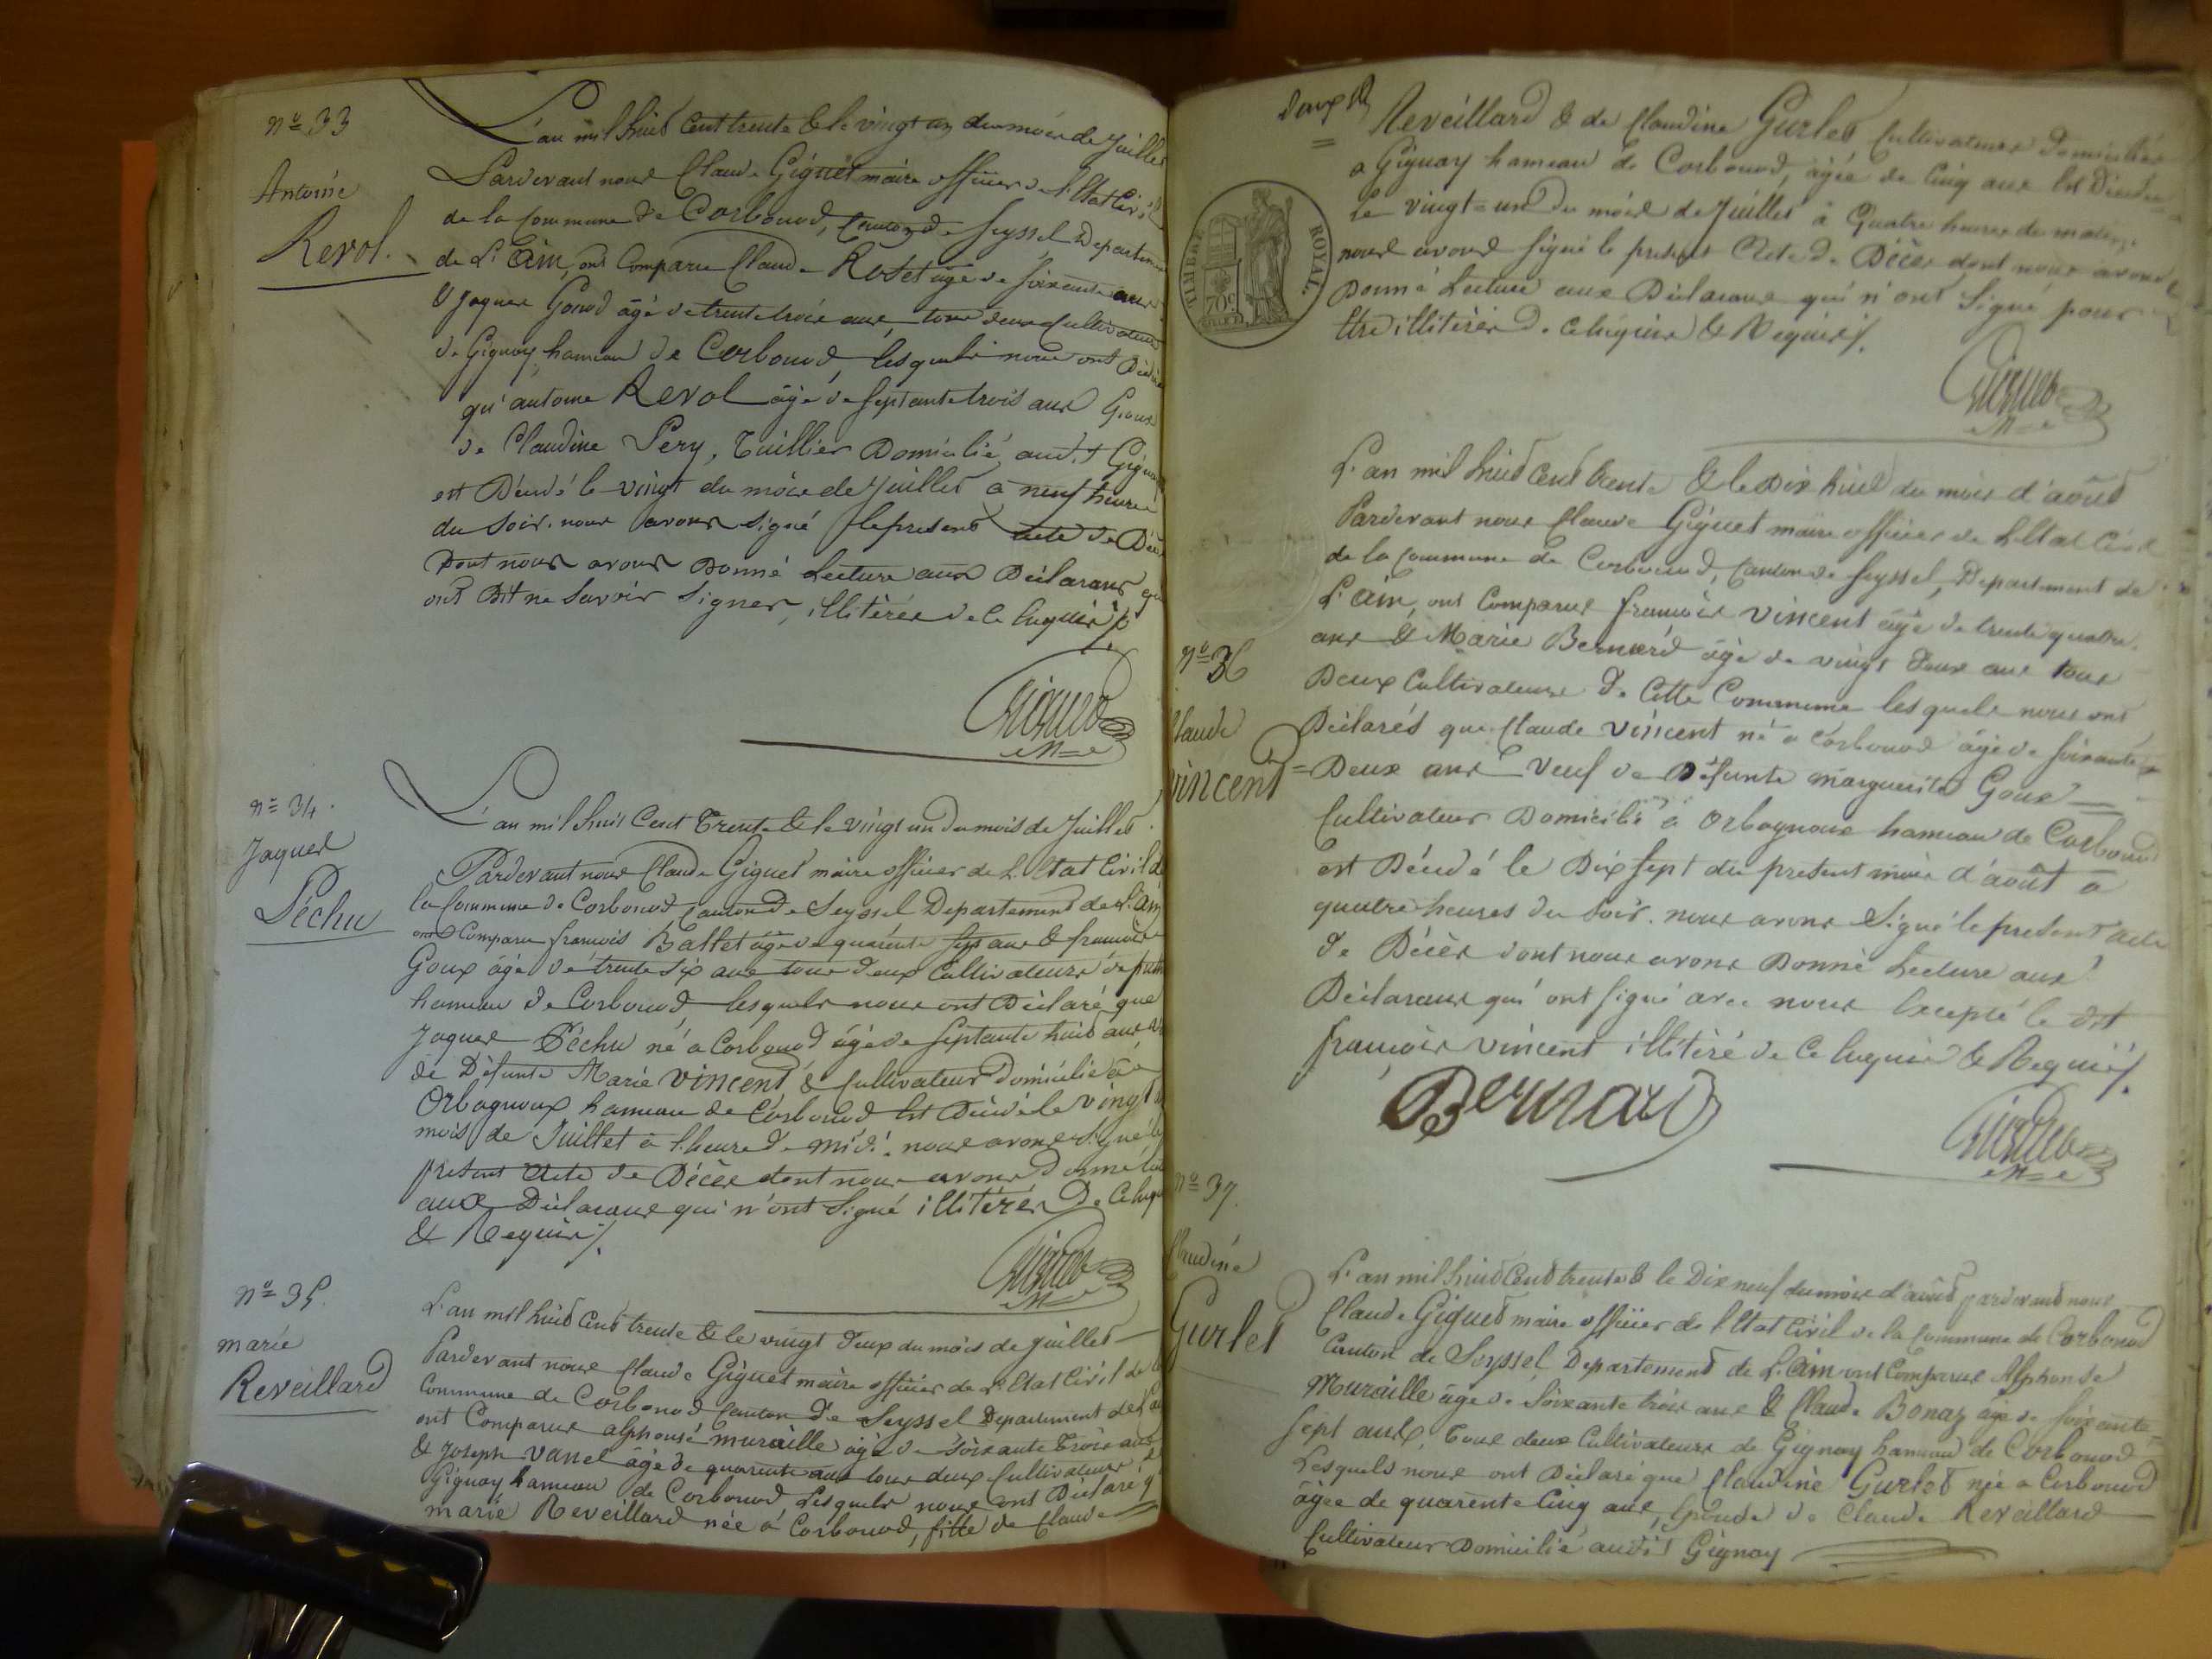 nº 33
Antoine
Revol.
L'an mil huit cent trente & le vingt un du mois de Juillet
Pardevant nous Claude Giguet maire officier de l'Etat Civil
de la Commune de Corbonod, Canton de Seyssel Departement
de L'Ain, ont Comparu Claude Rosset âgé de soixante ans
& Jaques Gonod âgé de trente trois ans, tous deux Cultivateurs
de Gignay hameau de Corbonod, lesquels nous ont Déclaré
qu'antoine Revol âgé de septante trois ans Epoux
de Claudine Pery, Tuillier Domicilié audit Gignay
est Décédé le vingt du mois de Juillet à neuf heures
du soir. nous avons signé le present acte de Décès
Dont nous avons Donné Lecture aux Déclarans qui
ont Dit ne Savoir Signer, illitérés de ce Enquis /.
Giguet
M=e
nº 34.
Jaques
Péchu
L'an mil huit Cent Trente & le vingt un du mois de Juillet
Pardevant nous Claude Giguet maire officier de L'Etat Civil de
la Commune de Corbonod Canton de Seyssel Departement de L'ain
ont Comparu francois Ballet âgé de quarente sept ans & francois
Goux âgé de trente six ans tous deux Cultivateurs de
hameau de Corbonod, lesquels nous ont Déclaré que
Jaques Péchu né à Corbonod âgé de septante huit ans
de Défunte Marie Vincent & Cultivateur Domicilié à
Orbagnoux hameau de Corbonod Est Décédé le vingt
mois de Juillet à l'heure de midi. nous avons signé le
present Acte de Décès dont nous avons Donné
aux Déclarans qui n'ont Signé illitérés De ce
& Requis /.
Giguet
M=e
nº 35.
marie
Reveillard
L'an mil huit Cent trente & le vingt Deux du mois de Juillet
Pardevant nous Claude Giguet maire officier de L'Etat Civil de la
Commune de Corbonod Canton de Seyssel Departement de
ont Comparus alphonse muraille âgé de soixante Trois ans
& Joseph Vanel âgé de quarente ans tous deux Cultivateurs
Gignay hameau de Corbonod Lesquels nous ont Déclaré
marie Reveillard née à Corbonod, fille de Claude
TIMBRE ROYAL
70c
Reveillard & de Claudine Gurlet Cultivateurs Domiciliés
a Gignay hameau de Corbonod, âgée de Cinq ans Est Décédée
le vingt=un du mois de Juillet à Quatre heures du matin.
nous avons signé le present Acte de Décès dont nous avons
Donné Lecture aux Déclarans qui n'ont Signé pour
Etre illitérés De ce Enquis & Requis /.
Giguet
M=e
nº 36
Claude
Vincent
L'an mil huit Cent trente & le Dix huit du mois d'août
Pardevant nous Claude Giguet maire officier de L'Etat Civil
de la Commune de Corbonod, Canton de Seyssel, Departement de
L'ain, ont Comparus francois Vincent âgé de trente quatre
ans & Marie Bernard âgé de vingt Deux ans tous
Deux Cultivateurs De Cette Commune lesquels nous ont
Déclarés que Claude Vincent né à Corbonod âgé de soixante=
=Deux ans Veuf de Défunte marguerite Goux
Cultivateur Domicilié à Orbagnoux hameau de Corbonod
est Décédé le Dix Sept du present mois d'août à
quatre heures du soir. nous avons Signé le present acte
De Décès dont nous avons Donné Lecture aux
Déclarans qui ont signé avec nous Excepté le dit
francois Vincent illitéré de ce Enquis & Requis /.
Bernard
Giguet
M=e
nº 37.
Claudine
Gurlet
L'an mil huit Cent trente & le Dix neuf du mois d'août pardevant nous
Claude Giguet maire officier de l'Etat Civil de la Commune de Corbonod
Canton de Seyssel Departement de L'Ain ont Comparus Alphonse
Muraille âgé de Soixante trois ans & Claude Bonaz âgé de soixante=
Sept ans, Tous deux Cultivateurs de Gignay hameau de Corbonod
Lesquels nous ont Déclaré que Claudine Gurlet née a Corbonod
âgée de quarente Cinq ans, Epouse de Claude Reveillard
Cultivateur Domicilié audit Gignay